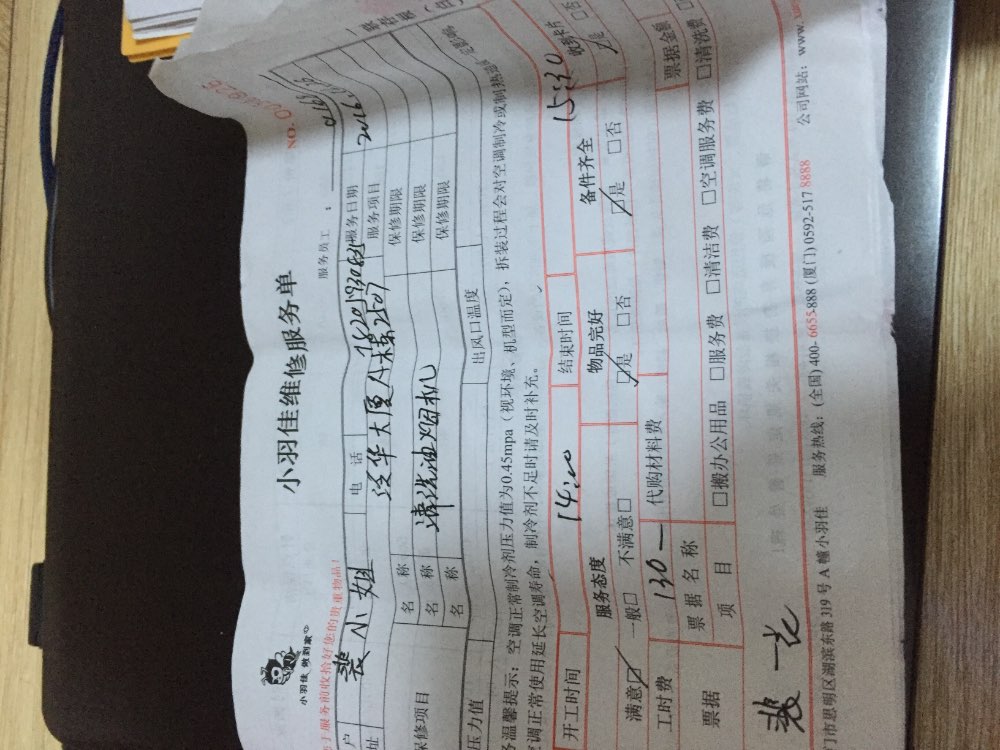 小羽佳 做到家
小羽佳维修服务单
NO.
服务前收拾好您的贵重物品!
服务员工:
户 裴小姐 电话 服务日期 2016.
址 泛华大厦A栋2507 服务项目
保修项目 名称 保修期限
名称 清洗油烟机 保修期限
名称 保修期限
压力值 出风口温度
务温馨提示:空调正常制冷剂压力值为0.45mpa(视环境、机型而定),拆装过程会对空调制冷或制热
空调正常使用延长空调寿命,制冷剂不足时请及时补充。
开工时间 14:00 结束时间 15:30
服务态度 物品完好 备件齐全
满意☑ 一般□ 不满意□ ☑是 □否 ☑是 □否
工时费 130— 代购材料费
票据 票据名称 票据金额
项目 □搬办公用品 □服务费 □清洁费 □空调服务费 □清洗费
门市思明区湖滨东路319号A幢小羽佳 服务热线:(全国)400-6655-888 (厦门)0592-517 8888 公司网站:www.